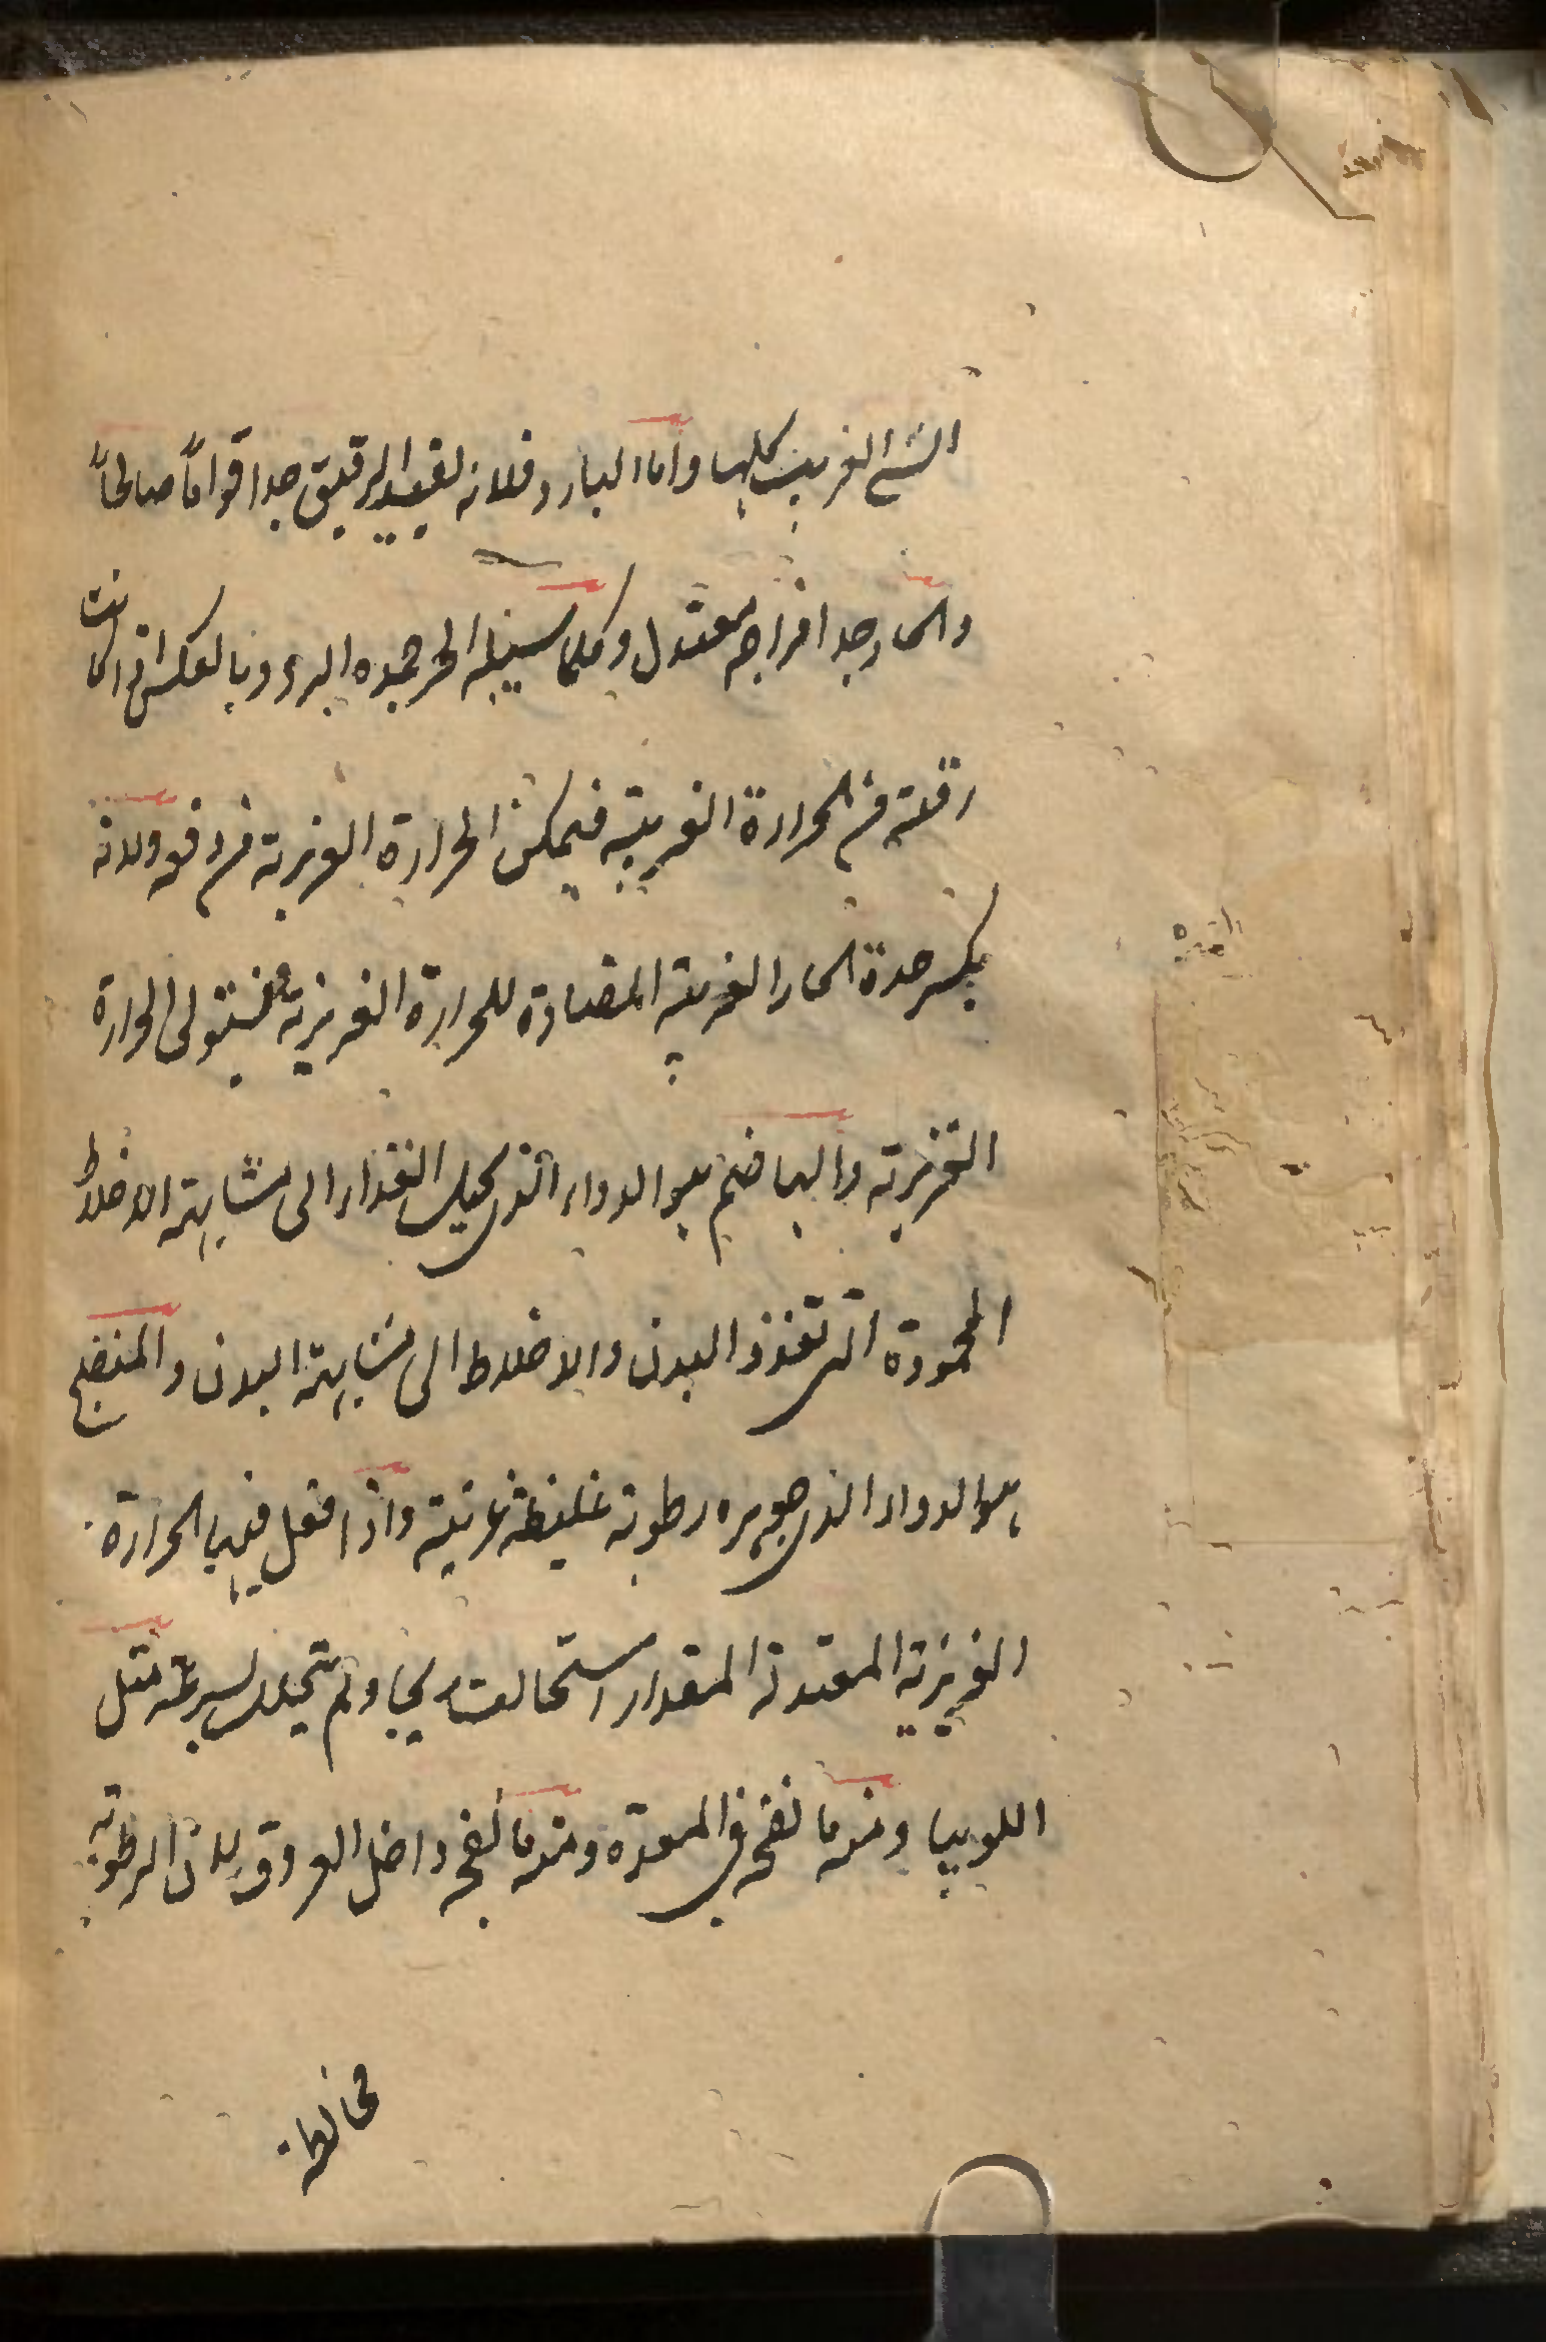 الشئ الغريب كلها واما البارد فلانه لفيد الرقيق جدا قواماً صالحاً
والحار جدا مزاجه معتدل وكلما سيله الحر جمده البرد وبالعكس اذا كانت
رقته من الحرارة الغريبة فيمكن الحرارة الغريزية من دفعه ولانه
يكسر حدة الحار الغريبة المضادة للحرارة الغريزية فيستولى الحرارة
الغريزية والهاضم هو الدواء الذى يحيل الغذاء الى مشابهة الاخلاط
المحمودة التى تغذو البدن والاخلاط الى مشابهة البدن والمنفخ
هو الدواء الذى جوهره رطوبة غليظة غريبة واذا فعل فيها الحرارة
الغريزية المعتدلة المقدار استحالت ريحا ولم يتحلل بسرعة مثل
اللوبيا ومنه ما نفخه فى المعدة ومنه ما نفخه داخل العروق لان الرطوبة
مخالطة